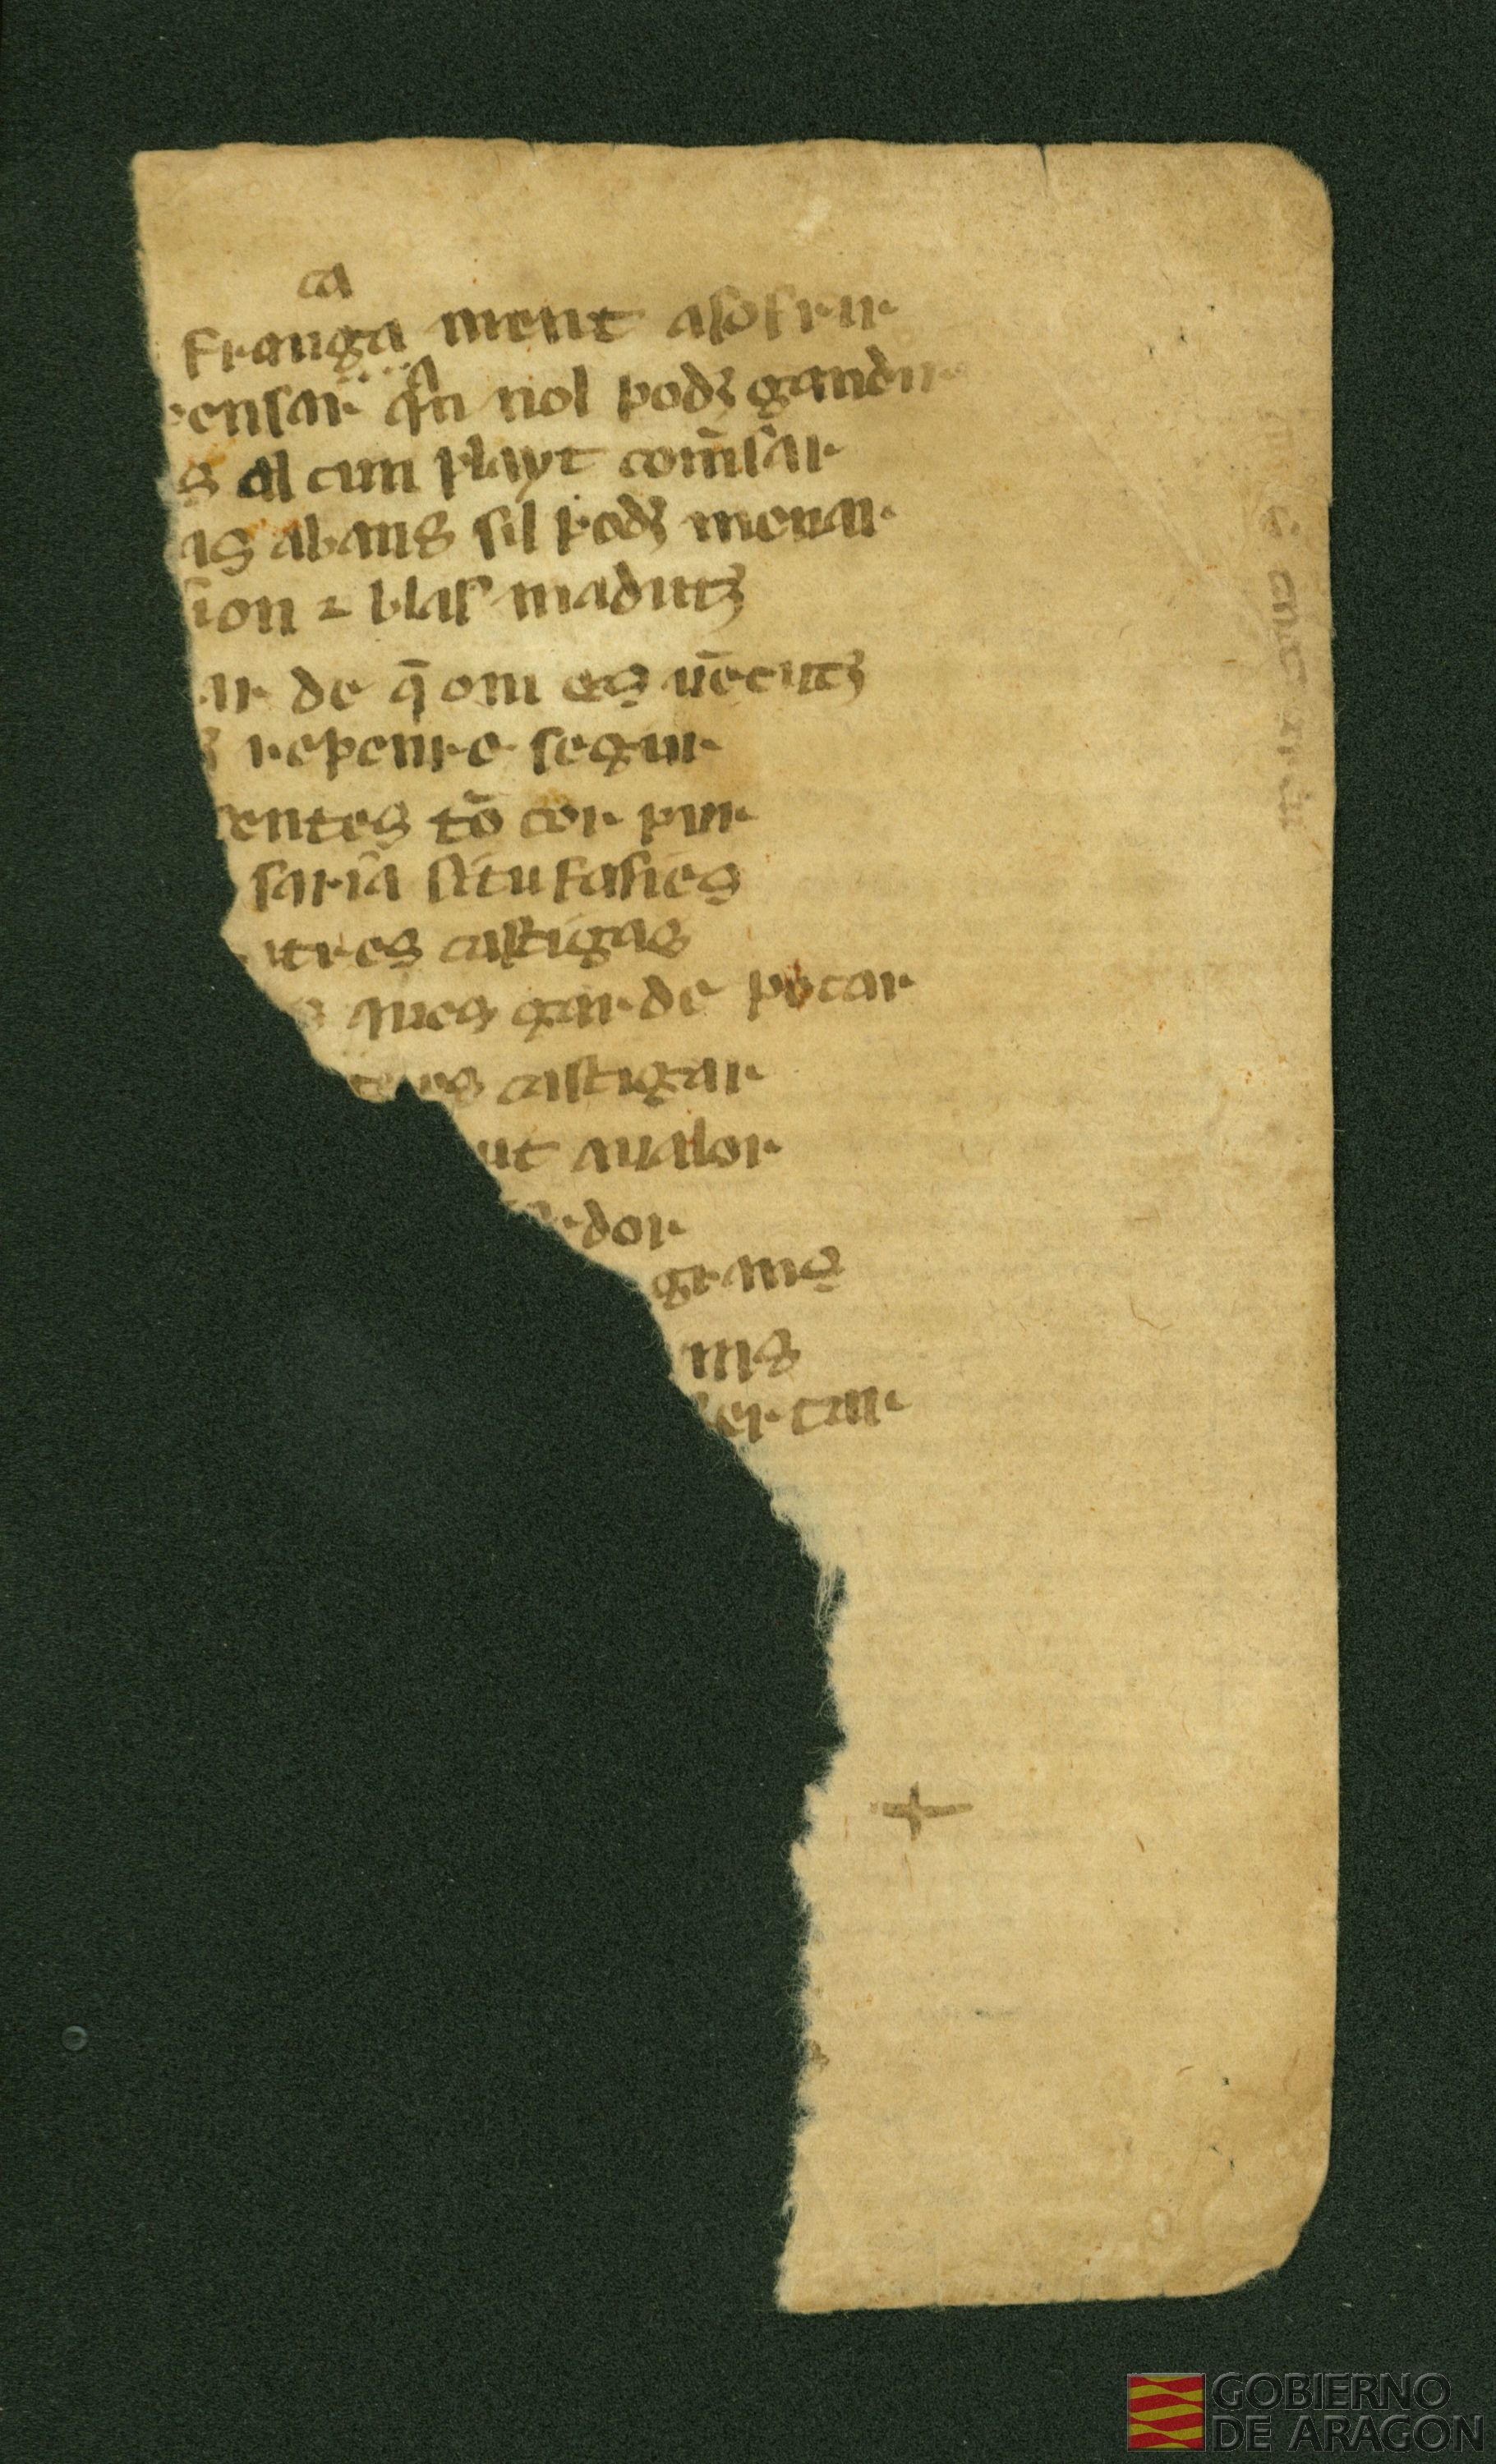 ca
frauga ment asofrir
ensar qn nol podȝ gandir
s al cun playt com̄sar
as abans sil podȝ menar
sion ⁊ blasmadutȝ
ar de q̄ om es uēcutȝ
ȝ repenre segur
entes tō cor pur
saria situ fasies
utres castigas
s ques gar de pecar
es castigar
ut aualor
dor
grans
ans
sertar
GOBIERNO
DE ARAGON